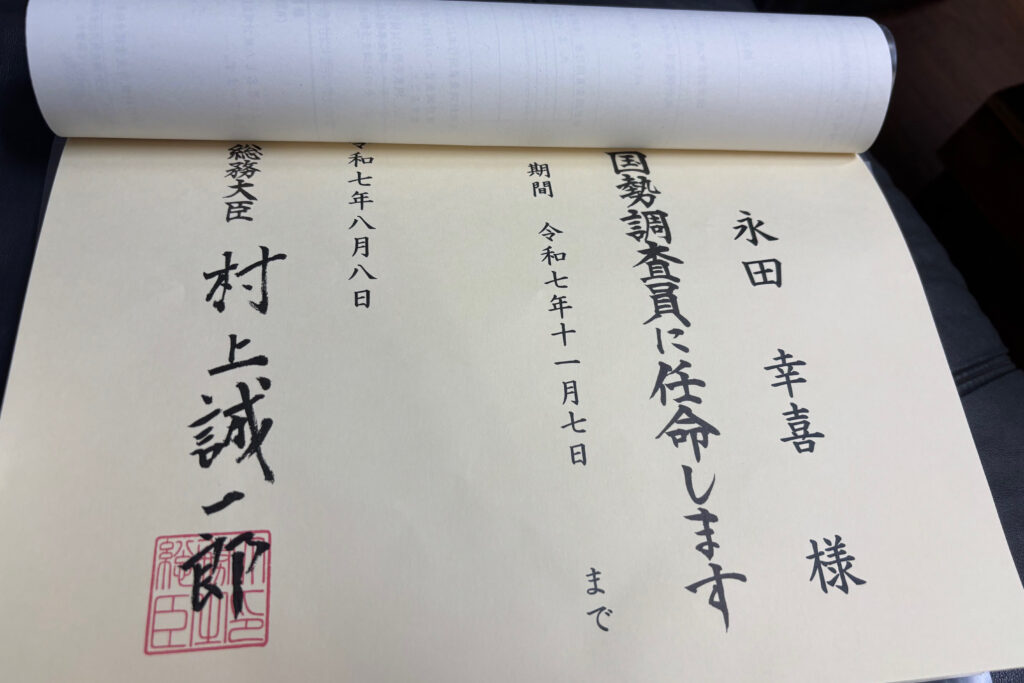 永田 幸喜 様
国勢調査員に任命します
期間 令和七年十一月七日 まで
令和七年八月八日
総務大臣 村上誠一郎